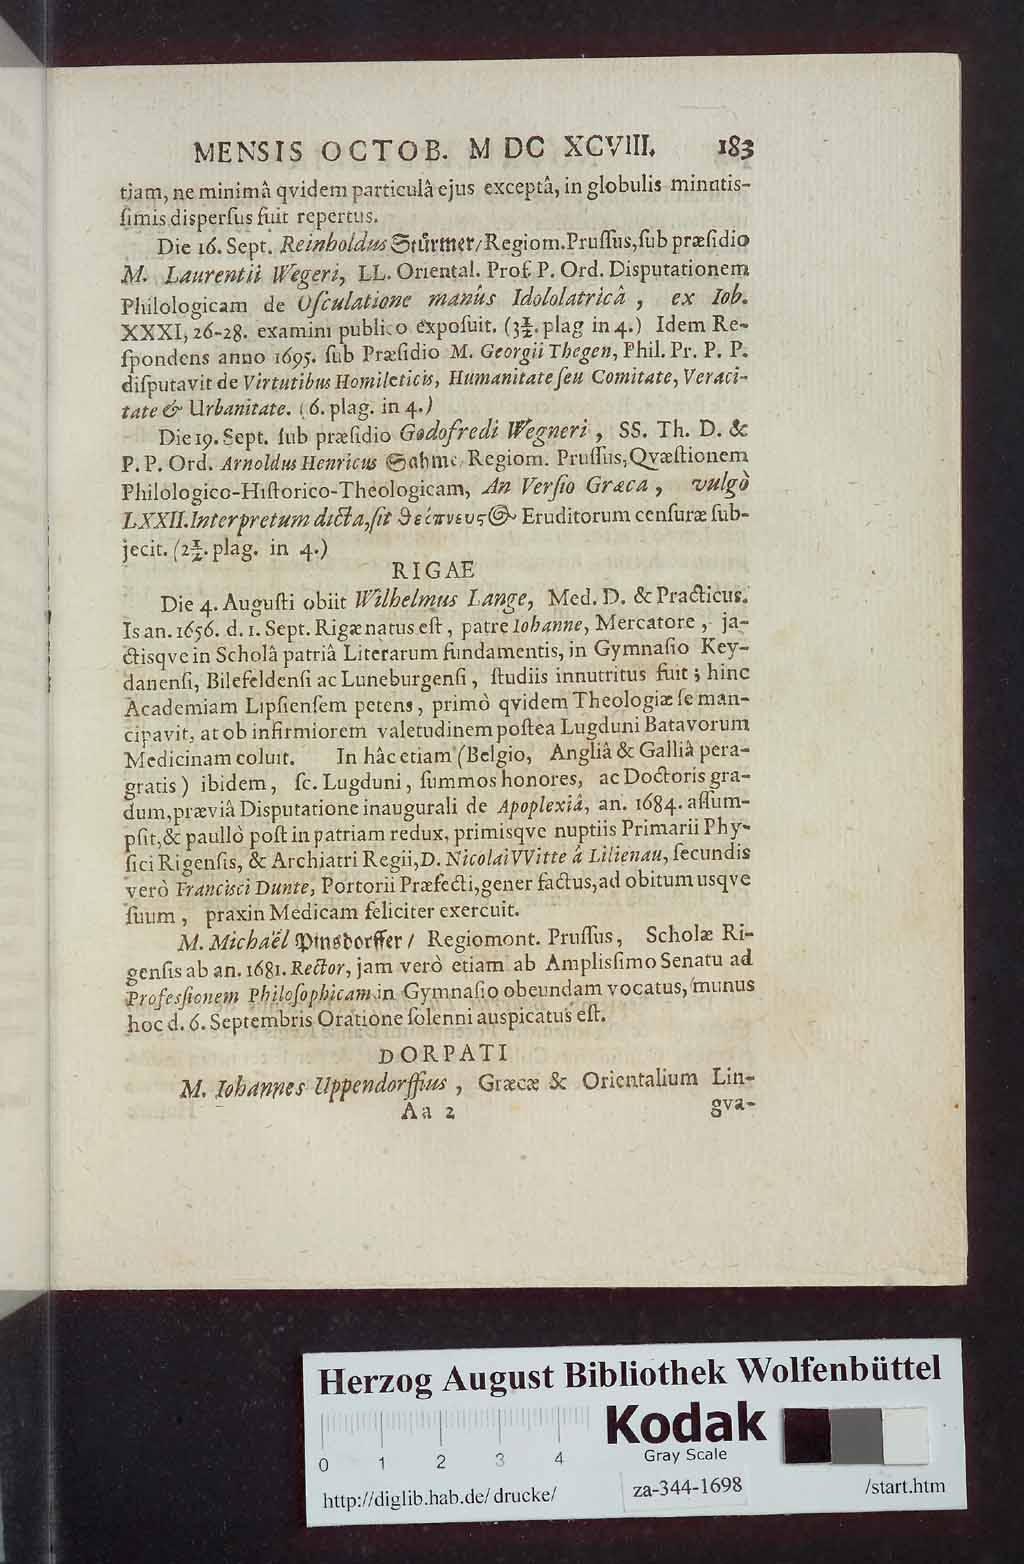 MENSIS OCTOB. M DC XCVIII. 183
tiam, ne minimâ qvidem particulâ ejus exceptâ, in globulis minutis-
ſimis diſperſus fuit repertus.
Die 16. Sept. Reinholdus Stürmer/ Regiom. Pruſſus, ſub præſidio
M. Laurentii Wegeri, LL. Oriental. Prof. P. Ord. Disputationem
Philologicam de Oſculatione manûs Idololatricâ, ex Iob.
XXXI, 26-28. examini publico expoſuit. (3½. plag in 4.) Idem Re-
ſpondens anno 1695. ſub Præſidio M. Georgii Thegen, Phil. Pr. P. P.
diſputavit de Virtutibus Homileticis, Humanitate ſeu Comitate, Veraci-
tate & Urbanitate. (6. plag. in 4.)
Die 19. Sept. ſub præſidio Godofredi Wegneri, SS. Th. D. &
P. P. Ord. Arnoldus Henricus Sahme, Regiom. Pruſſus, Qvæſtionem
Philologico-Hiſtorico-Theologicam, An Verſio Græca, vulgò
LXXII. Interpretum dicta, ſit θείπνευς@ Eruditorum cenſuræ ſub-
jecit. (2½. plag. in 4.)
RIGAE
Die 4. Auguſti obiit Wilhelmus Lange, Med. D. & Practicus.
Is an. 1656. d. 1. Sept. Rigæ natus eſt, patre Iohanne, Mercatore, ja-
ctisqve in Scholâ patriâ Literarum fundamentis, in Gymnaſio Key-
danenſi, Bilefeldenſi ac Luneburgenſi, ſtudiis innutritus fuit; hinc
Academiam Lipſienſem petens, primò qvidem Theologiæ ſe man-
cipavit, at ob infirmiorem valetudinem poſtea Lugduni Batavorum
Medicinam coluit. In hâc etiam (Belgio, Angliâ & Galliâ pera-
gratis) ibidem, ſc. Lugduni, ſummos honores, ac Doctoris gra-
dum, præviâ Disputatione inaugurali de Apoplexiâ, an. 1684. aſſum-
pſit, & paullò poſt in patriam redux, primisqve nuptiis Primarii Phy-
ſici Rigenſis, & Archiatri Regii, D. Nicolai VVitte à Lilienau, ſecundis
verò Franciſci Dunte, Portorii Præfecti, gener factus, ad obitum usqve
ſuum, praxin Medicam feliciter exercuit.
M. Michaël Pinsdorffer/ Regiomont. Pruſſus, Scholæ Ri-
genſis ab an. 1681. Rector, jam verò etiam ab Amplisſimo Senatu ad
Profesſionem Philoſophicam in Gymnaſio obeundam vocatus, munus
hoc d. 6. Septembris Oratione ſolenni auspicatus eſt.
DORPATI
M. Iohannes Uppendorffius, Græcæ & Orientalium Lin-
Aa 2 gva-
Herzog August Bibliothek Wolfenbüttel
Kodak
Gray Scale
0 1 2 3 4
http://diglib.hab.de/drucke/ za-344-1698 /start.htm